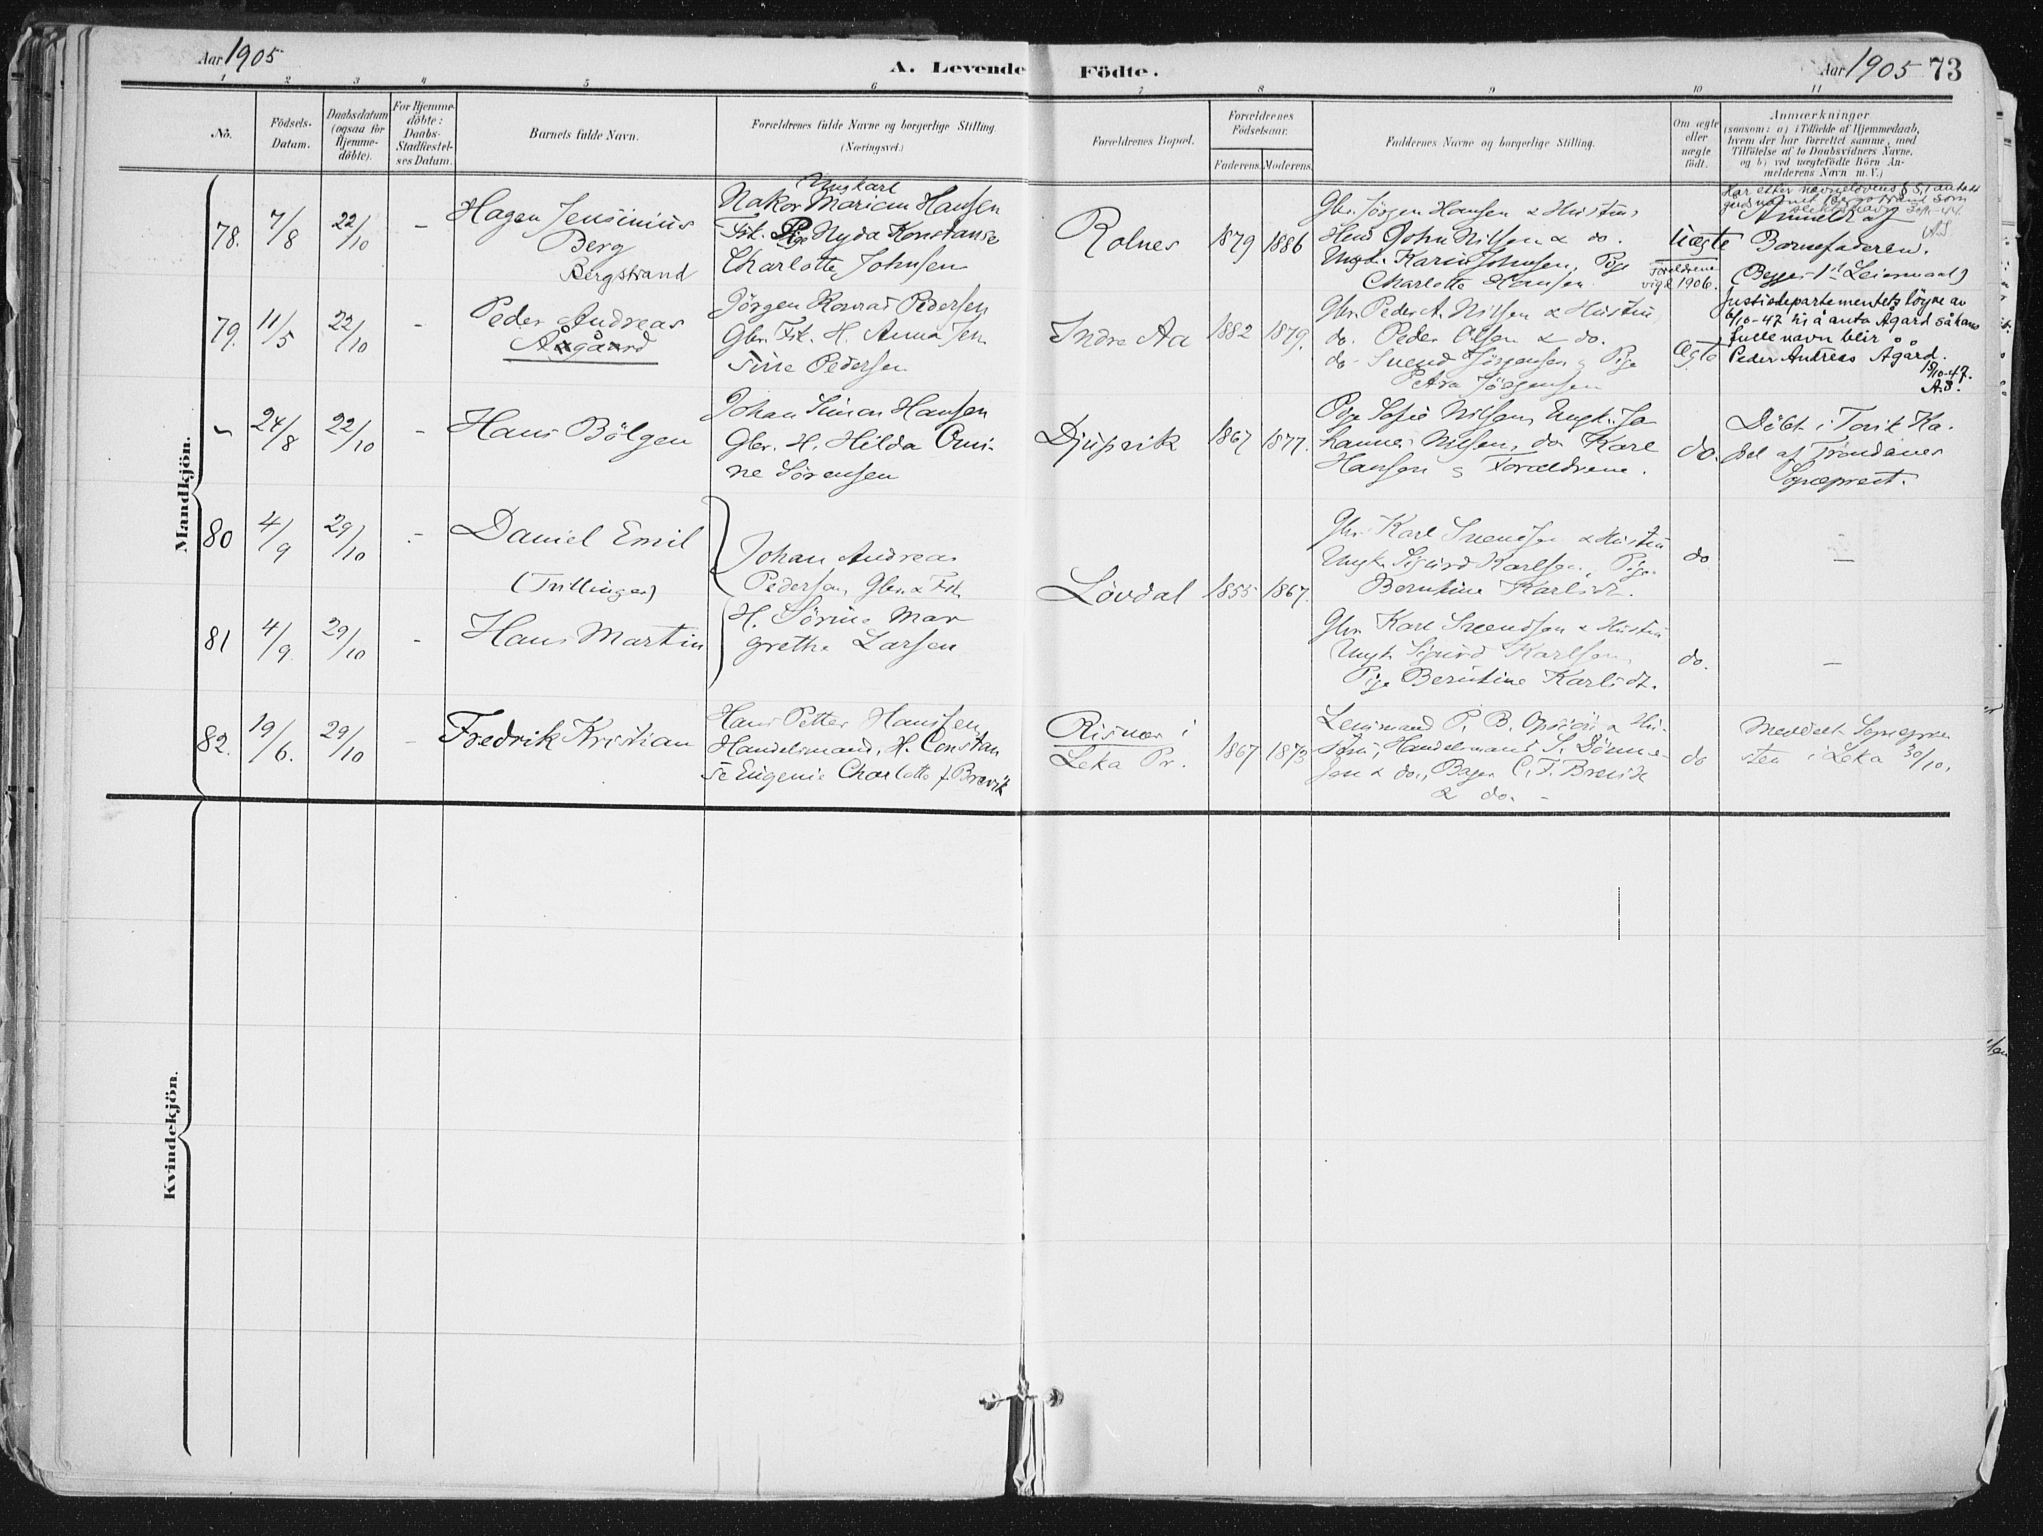 Aar 1905
A. Levende Födte.
Aar 1905 73
1 2 3 4 5 6 7 8 9 10 11
No.
Födsels-Datum.
Daabsdatum (ogsaa for Hjemmedöbte).
For Hjemmedöbte: Daabs-Stadfæstelses Datum.
Barnets fulde Navn.
Forældrenes fulde Navne og borgerlige Stilling. (Næringsvei.)
Forældrenes Bopæl.
Forældrenes Födselsaar.
Faderens. Moderens.
Faddernes Navne og borgerlige Stilling.
Om ægte eller uægte födt.
Anmærkninger
(saasom: a) i Tilfælde af Hjemmedaab,
hvem der har forrettet samme, med
Tilföielse af to Daabsvidners Navne,
og b) ved uægtefödte Börn An-
melderens Navn m. V.)
Mandkjön.
78. 7/8 22/10 - Hagen Jensinius
Berg
Bergstrand
Ungkarl
Nakor Marian Hansen
Fsk. Pige Nyda Konstanse
Charlotte Johnsen
Rolnes 1879 1886
Gbr. Jörgen Hansen & Hustru
John Nilsen & do.
Ungk. Karin Johnsen, Pige
Charlotte Hansen
Uægte
Forældrene
vigt 1906.
Har etter navnelovens § 5,1 antatt
gårdsnavnet Bergstrand som
slektsnavn
Anmeldt af
Barnefaderen.
(Begges 1ste Leiermaal)
79. 11/5 22/10 - Peder Andreas
Ågård
Jörgen Konrad Pedersen
Gbr. Fsk. H. Anna Jen
sine Pedersen
Indre Aa 1882 1879.
Gbr. Peder A. Nilsen & Hustru
do. Peder Olsen & do.
do. Svend Jörgensen, Pige
Petra Jörgensen
Ægte
Justisdepartementets löyve av
6/10-47 til å anta Ågård så hans
fulle navn blir
Peder Andreas Ågård.
15/10-47.
A.S.
24/8 22/10 - Hans Bölgen
Johan Simon Hansen
Gbr. H. Hilda Omi-
ne Sörensen
Djupvik 1867 1877.
Pige Sofie Nilsen, Ungk. Jo
hannes Nilsen, do Karl
Hansen og Forældrene.
do.
Döbt i Tovik Ka-
pel af Trondenes
Sogneprest.
80 4/9 29/10 - Daniel Emil
(Tvillinger)
Johan Andreas
Pedersen, Gbr. & Fsk.
H. Sörine Mar
grethe Larsen
Lövdal 1855 1867.
Gbr. Karl Svendsen & Hustru
Ungk. Sigurd Karlsen, Pige
Berntine Karlsdt.
do. -
81 4/9 29/10 - Hans Martin
Gbr. Karl Svendsen & Hustru
Ungk. Sigurd Karlsen,
Pige Berntine Karlsdt.
do. -
82. 19/6. 29/10 - Fredrik Kristian
Hans Petter Hanssen
Handelsmand, H. Constan
se Eugenie Charlotte f. Brevik
Risvær i
Leka Pr. 1867 1873
Lensmand P. B. & Hu-
stru, Handelsmand S. Dönne-
sen & do., Bager C. F. Brevik
& do. -
do
Meddelt Sognepre
sten i Leka 30/10.
Kvindekjön.